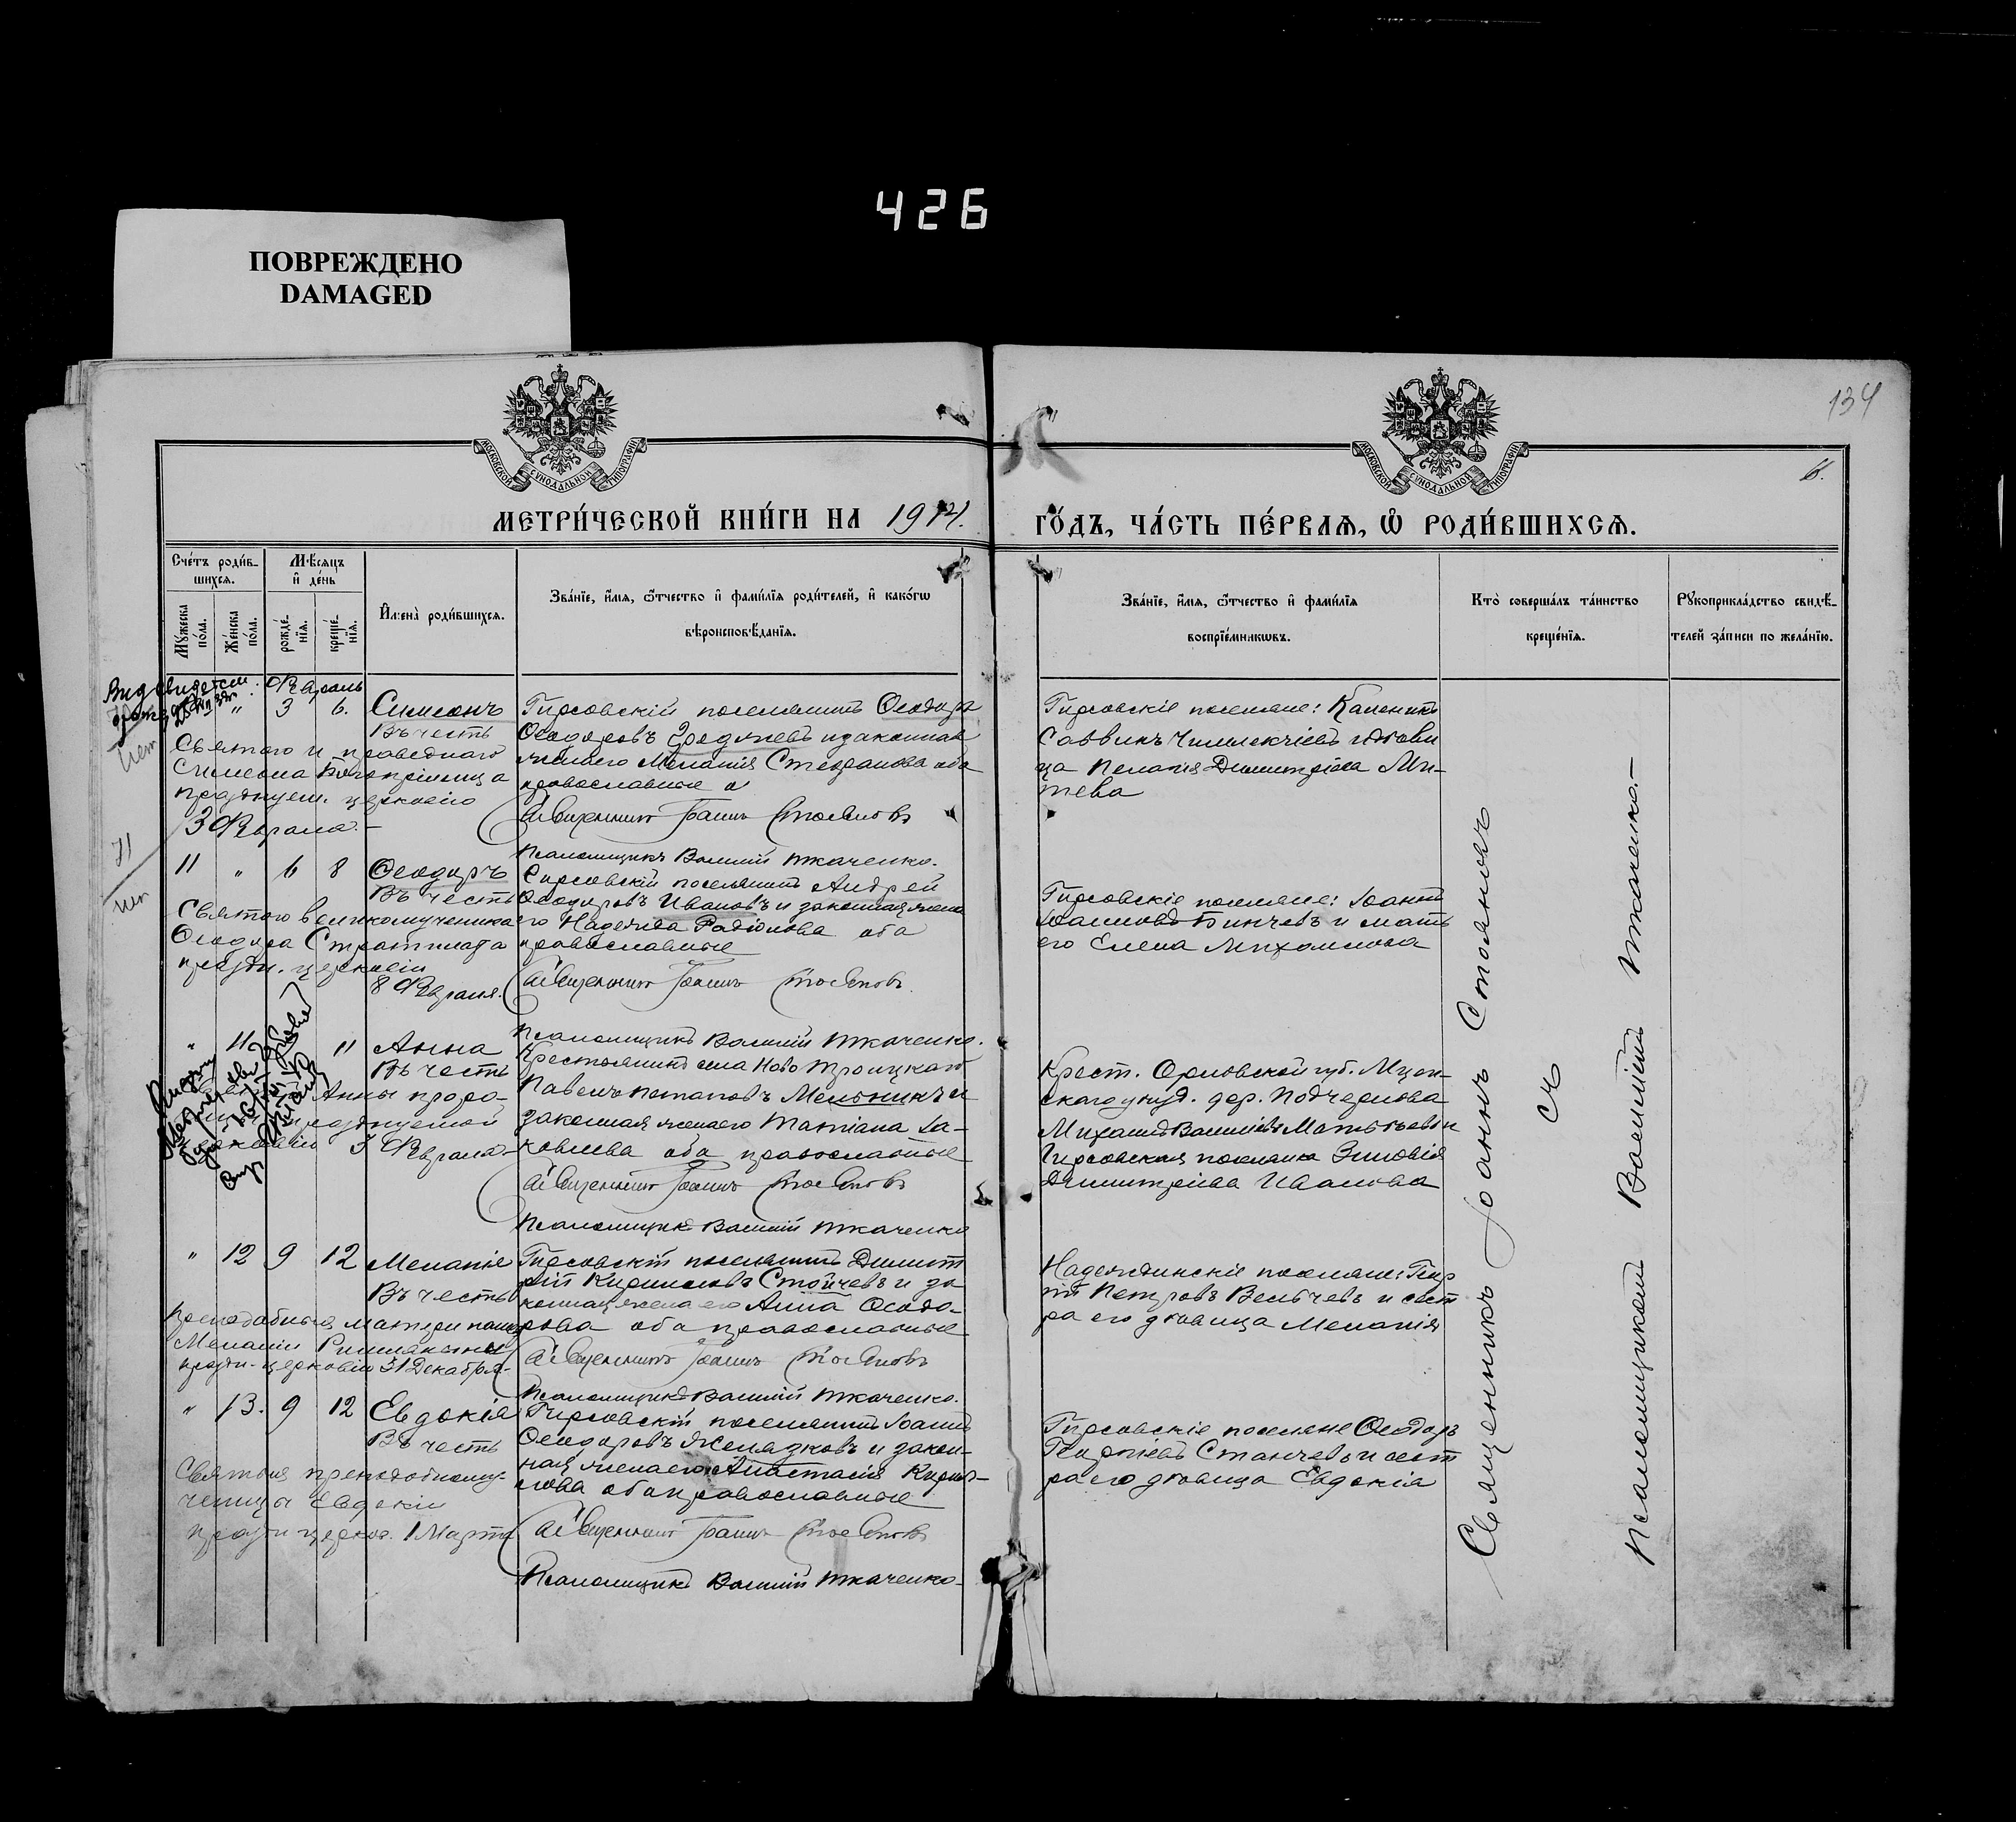 426
ПОВРЕЖДЕНО
DAMAGED
134
6.
МОСКОВСКОЙ СѴНОДАЛЬНОЙ ТИПОГРАФІИ
МОСКОВСКОЙ СѴНОДАЛЬНОЙ ТИПОГРАФІИ
МЕТРИ́ЧЕСКОЙ КНИ́ГИ НА 1914.
ГО́ДЪ, ЧА́СТЬ ПЕ́РВАЯ, Ѡ РОДИ́ВШИХСЯ.
Сче́тъ роди́в-
шихся.
Мѣсяцъ
и де́нь
Мꙋжеска по́ла.
Же́нска по́ла.
рожде́-
нїя.
креще́-
нїя.
Имена̀ роди́вшихся.
Зва́нїе, и́мя, ѻ҆́тчество и фами́лїя роди́телей, и како́гѡ
вѣроисповѣ́данїя.
Зва́нїе, и́мя, ѻ҆́тчество и фами́лїя
воспрїе́мникѡвъ.
Кто̀ соверша́лъ та́инство
креще́нїя.
Рꙋкоприкла́дство свидѣ́-
телей за́писи по жела́нїю.
Февраль
" 3 6. Симеонъ
Въ честь
Святого и праведного
Симеона Богопріимца
празднуем. церковію
3 Февраля.-
Гирсовскій поселянинъ Ѳеодоръ
Ѳеодоровъ и законная
жена его Меланія Стефанова оба
православные
Священникъ Іоаннъ Стояновъ
Псаломщикъ Василій Ткаченко.
Гирсовскіе поселяне:
Саввинъ Чимлекчіевъ и дѣви
ца Пелагія Димитріева Ми-
тева
11 " 6 8 Ѳеодоръ
Въ честь
Святого великомученика
Ѳеодора Стратилата
праздн. церковію
8 Февраля.
Гирсовскій поселянинъ Андрей
Ѳеодоровъ Ивановъ и законная жена
его Надежда Родіонова оба
православные
Священникъ Іоаннъ Стояновъ.
Псаломщикъ Василій Ткаченко.
Гирсовскіе поселяне: Іоаннъ
Іоанновъ Бинчевъ и мать
его Елена Михаилова
" 11 11 Анна
Въ честь
Анны проро-
празднуемой
церковію 3 Февраля.-
Крестьянинъ села Ново Троицкаго
Павелъ Потаповъ Мельникъ и
законная жена его Татіана Іа-
ковлева оба православные
Священникъ Іоаннъ Стояновъ
Псаломщикъ Василій Ткаченко
Крест. Орловской губ. Мцен-
скаго уѣзд. дер. Подчернева
Михаилъ Василіевъ Матвѣевъ и
Гирсовская поселянка Зиновія
Димитріева Иванова
" 12 9 12 Меланія
Въ честь
Преподобныя матери нашей
Меланіи Римляныни
праздн. церковію 31 Декабря.
Гирсовскій поселянинъ Димит
рій Кирилловъ Стойчевъ и за
конная жена его Анна Ѳеодо-
рова оба православные
Священникъ Іоаннъ Стояновъ
Псаломщикъ Василій Ткаченко.
Надеждинскіе поселяне: Геор
гій Петровъ Вельчевъ и сест
ра его дѣвица Меланія
" 13. 9 12 Евдокія
Въ честь
Святыя преподобному-
ченицы Евдокіи
праздн церков. 1 Марта
Гирсовскій поселянинъ Іоаннъ
Ѳеодоровъ Желязковъ и закон-
ная жена его Анастасія Кирил-
лова оба православные
Священникъ Іоаннъ Стояновъ
Псаломщикъ Василій Ткаченко-
Гирсовскіе поселяне Ѳеодоръ
Георгіевъ Станчевъ и сест
ра его дѣвица Евдокія
Священникъ Іоаннъ Стояновъ
съ
Псаломщикомъ Василіемъ Ткаченко.-